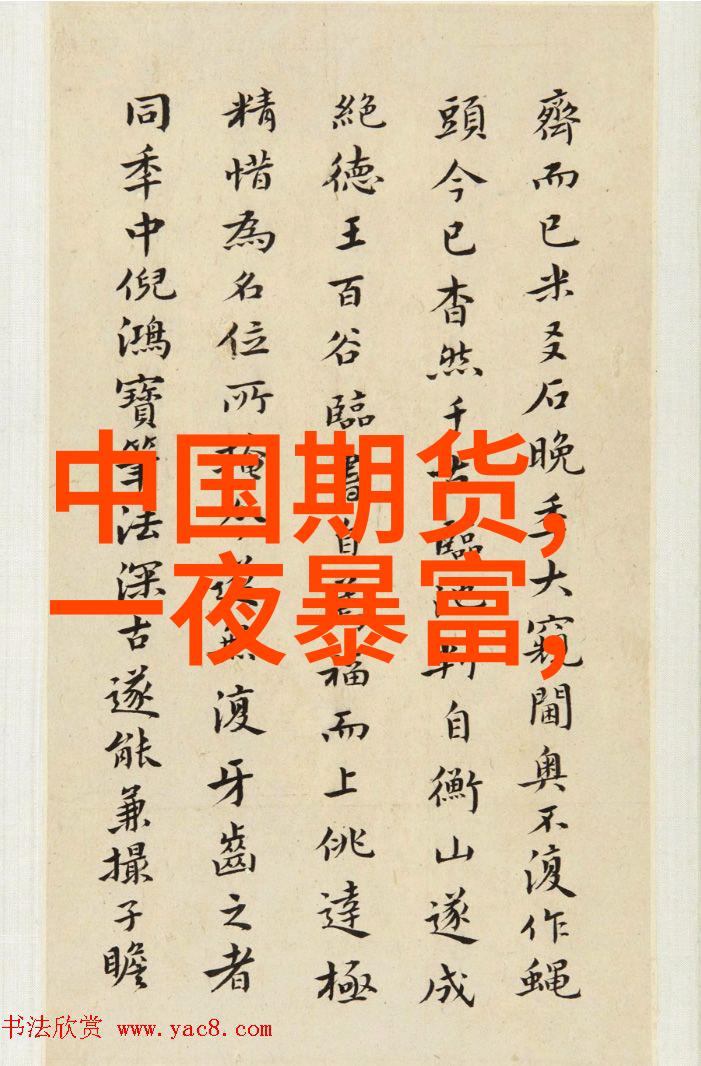 齊而已米友石晚秊大窺閫奥不復作蝇
頭今已杳然千古臨池判自衡山遂成
絶德王百谷臨書自福而上佻達極
精惜為名位所掩遂無復牙齒之者
同秊中倪鴻寶筆法深古遂能兼撮子瞻
中国期货,
一夜暴富,
书法欣赏 www.yac8.com